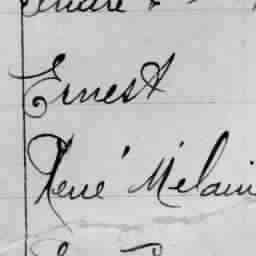 Ernest
René Mélain